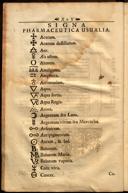 SIGNA
PHARMACEUTICA USUALIA.
Acetum.
Acetum destillatum.
Aër.
Alumen.
Amalgama.
Antimonium.
Aqua.
Aqua fortis.
Aqua Regis.
Arena.
Argentum seu Luna.
Argentum vivum seu Mercurius.
Arsenicum.
Auripigmentum.
Aurum, & Sol.
Balneum.
Balneum Mariæ.
Balneum vaporis.
Calx viva.
Cancer.